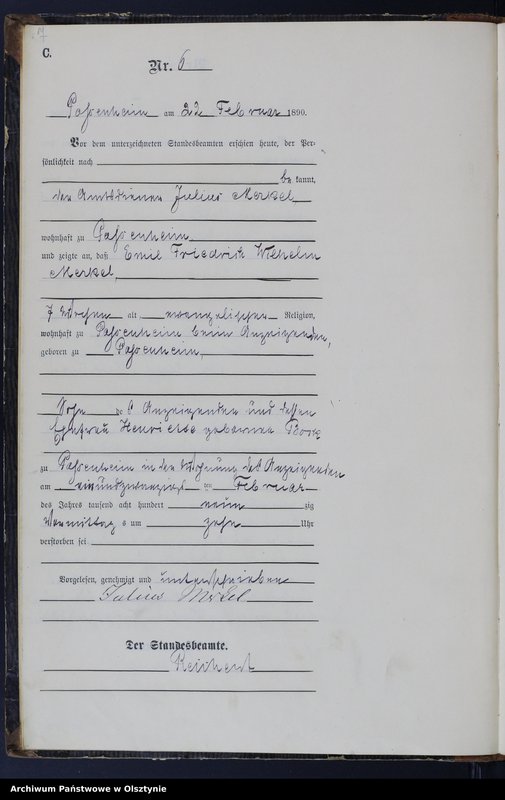 C.
Nr. 6
Passenheim am 22 Februar 1890.
Vor dem unterzeichneten Standesbeamten erschien heute, der Per-
sönlichkeit nach
be kannt,
der Amtsdiener Julius Merkel
wohnhaft zu Passenheim
und zeigte an, daß Emil Friedrich Wilhelm
Merkel,
7 Wochen alt, evangelischer Religion,
wohnhaft zu Passenheim beim Anzeigenden,
geboren zu Passenheim,
Sohn des Anzeigenden und dessen
Ehefrau Henriette geborenen
zu Passenheim in der Wohnung des Anzeigenden
am einundzwanzigsten Februar
des Jahres tausend acht hundert neun zig
Vormittag s um zehn Uhr
verstorben sei
Vorgelesen, genehmigt und unterschrieben
Julius Merkel
Der Standesbeamte.
Reichert
Archiwum Państwowe w Olsztynie